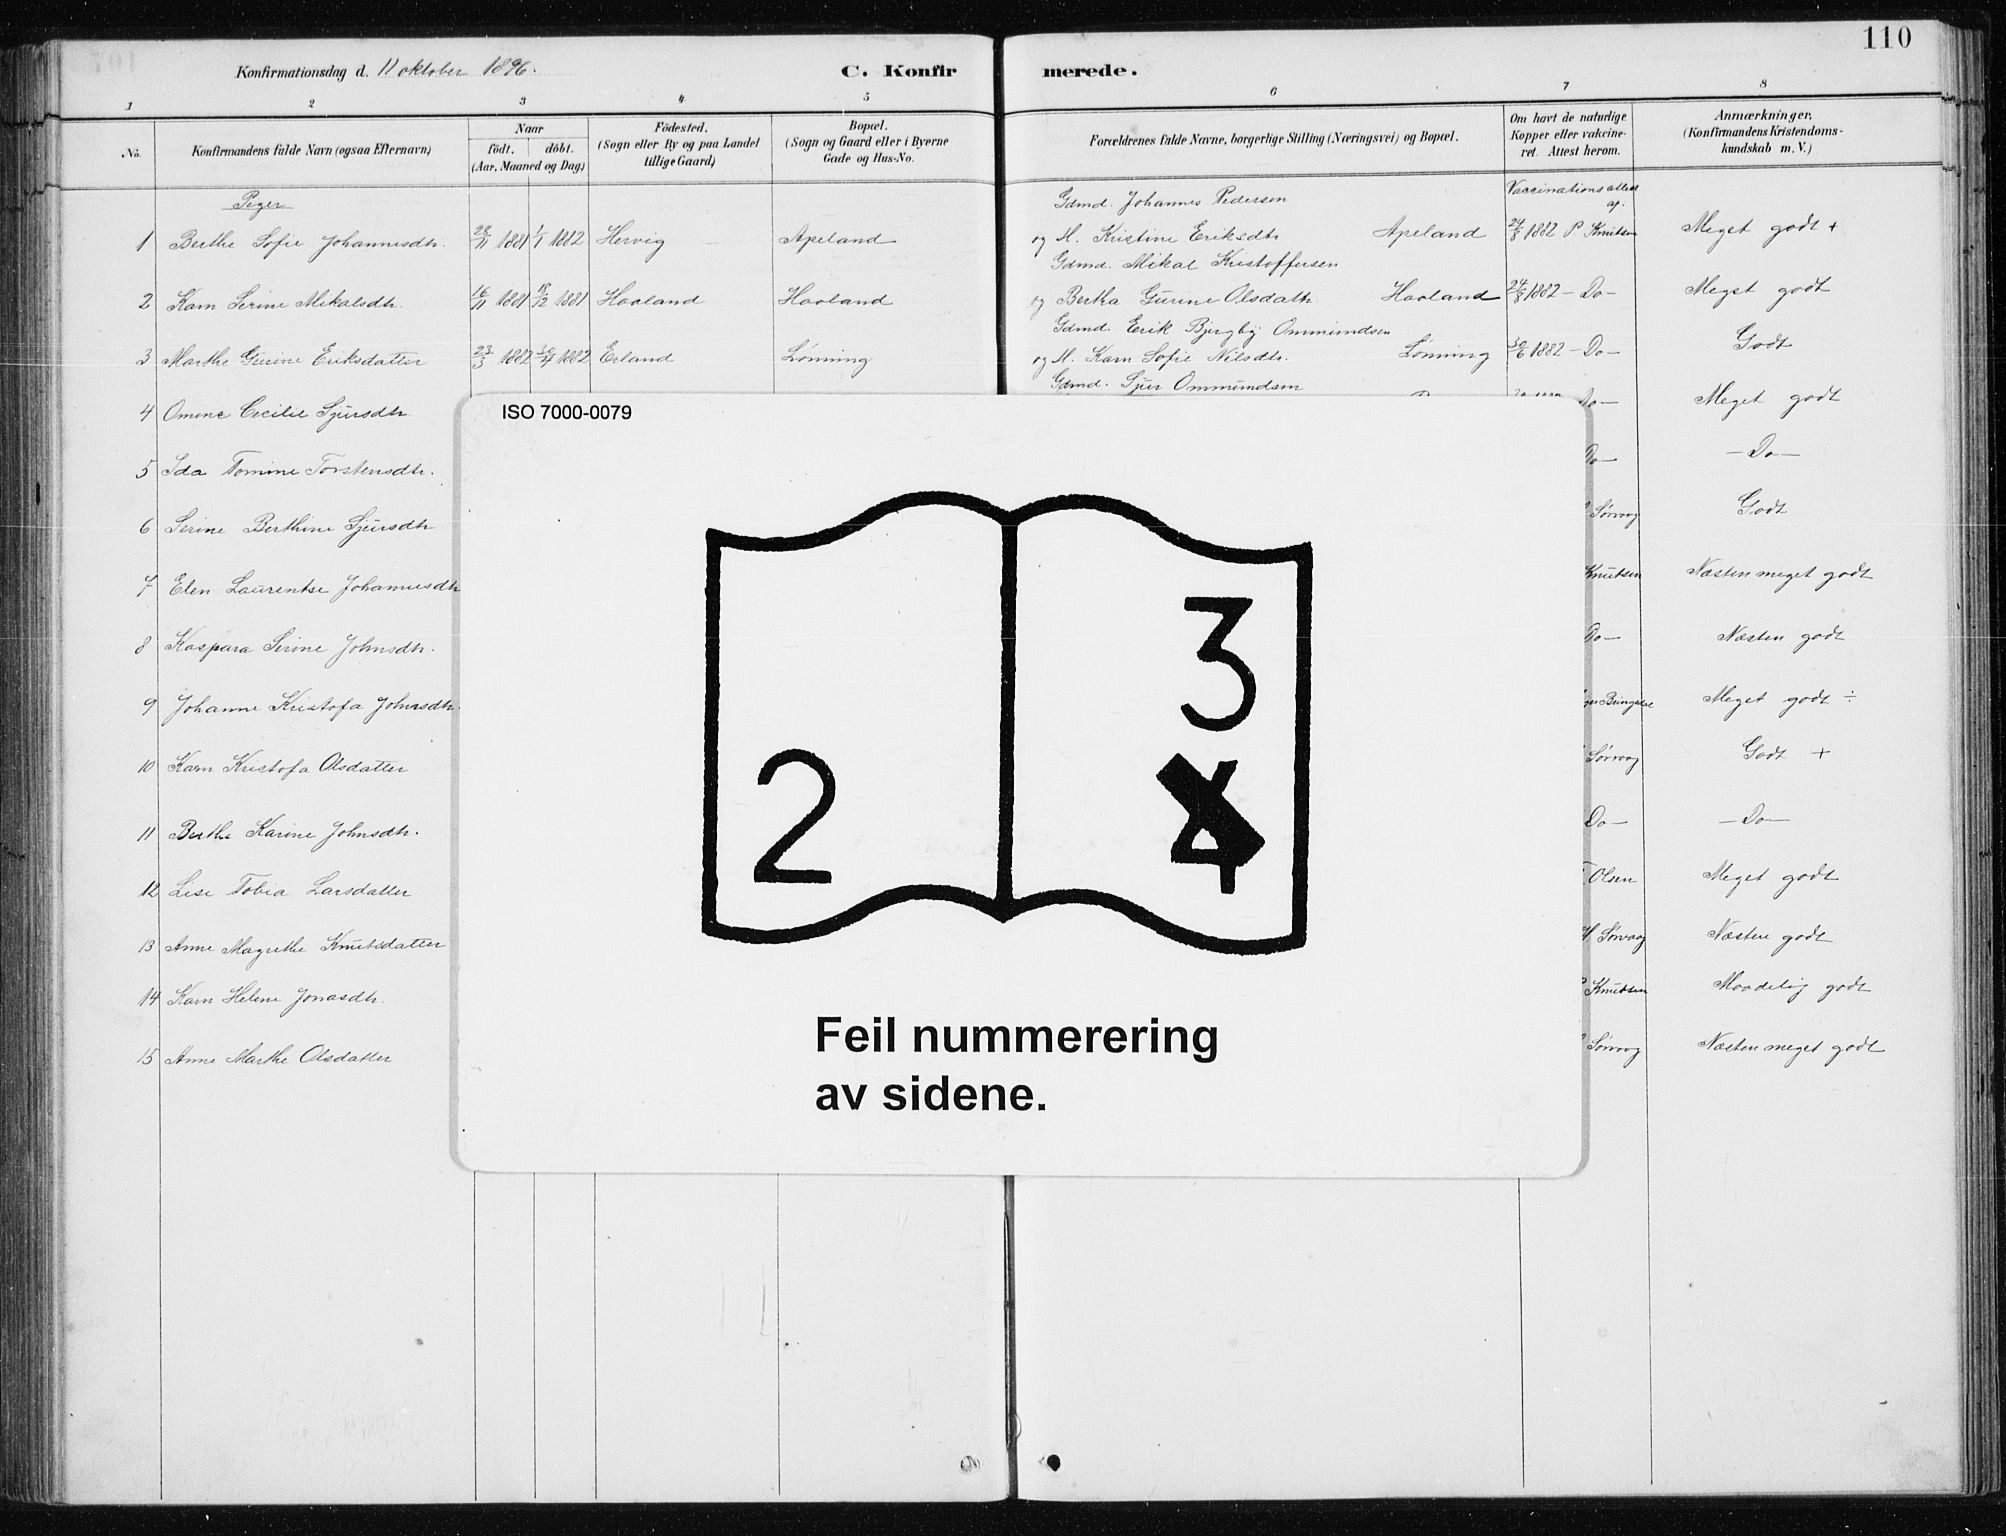 110
Konfirmationsdag d. 11 oktober 1896.
C. Konfirmerede.
1 2 3 4 5 6 7 8
No.
Konfirmandens fulde Navn (ogsaa Efternavn)
Naar
födt. döbt.
(Aar, Maaned og Dag)
Födested.
(Sogn eller By og paa Landet
tillige Gaard)
Bopæl.
(Sogn og Gaard eller i Byerne
Gade og Hus-No.
Forældrenes fulde Navne, borgerlige Stilling (Næringsvei) og Bopæl.
Om havt de naturlige
Kopper eller vakcine-
ret. Attest herom.
Anmærkninger.
(Konfirmandens Kristendoms-
kundskab m. V.)
Piger
Gdmd. Johannes Pedersen
Vaccinationsattest
af:
1 Berthe Sofie Johannesdtr. 28/11 1881 1/1 1882 Hervig Apeland og M. Kristine Eriksdtr Apeland 24/8 1882 P Knutsen Meget godt +
Gdmd. Mikal Kristoffersen
2 Karn Serine Mikalsdtr. 16/11 1881 18/12 1881 Haaland Haaland og Bertha Gurine Olsdatr. Haaland 24/8 1882 - Do - Meget godt
Gdmd. Erik Bjergby Ommundsen
3 Marthe Gurine Eriksdatter 23/3 1882 30/4 1882 Erland Lönning og M. Karn Sofie Nilsdtr. Lönning 30/6 1882 - Do - Godt
Gdmd. Sjur Ommundsen
4 Omine Cecilie Sjursdtr Do - Meget godt
5 Ida Tomine Torstensdtr. Do - - Do -
6 Serine Berthine Sjursdtr Sørvaag Godt
7 Elen Laurentse Johannesdtr Knutsen Næsten meget godt
8 Kaspara Serine Johnsdtr. Do - Næsten godt
9 Johanne Kristofa Johnsdtr. Meget godt ÷
10 Karn Kristofa Olsdatter Sørvaag Godt +
11 Berthe Karine Johnsdtr. Do - - Do -
12 Lise Tobia Larsdatter Olsen Meget godt
13 Anne Magrethe Knutsdatter Sørvaag Næsten godt
14 Karn Helene Jonasdtr. Knutsen Maadelig godt
15 Anne Marthe Olsdatter Sørvaag Næsten meget godt
ISO 7000-0079
3
2 4
Feil nummerering
av sidene.